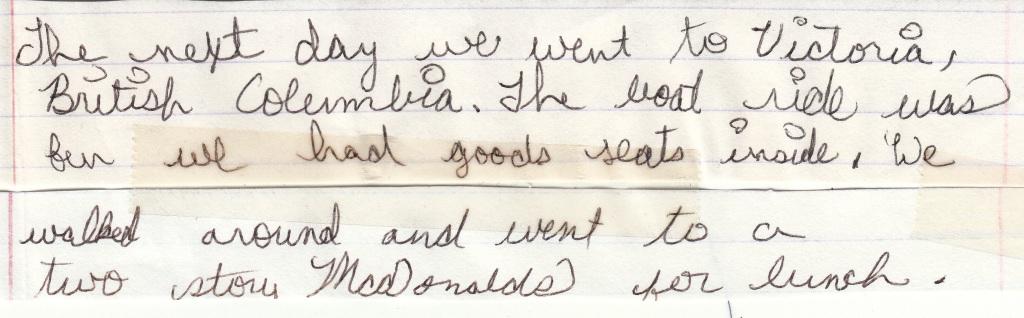 The next day we went to Victoria,
British Columbia. The boat ride was
fun we had goods seats inside. We
walked around and went to a
two story McDonalds for lunch.